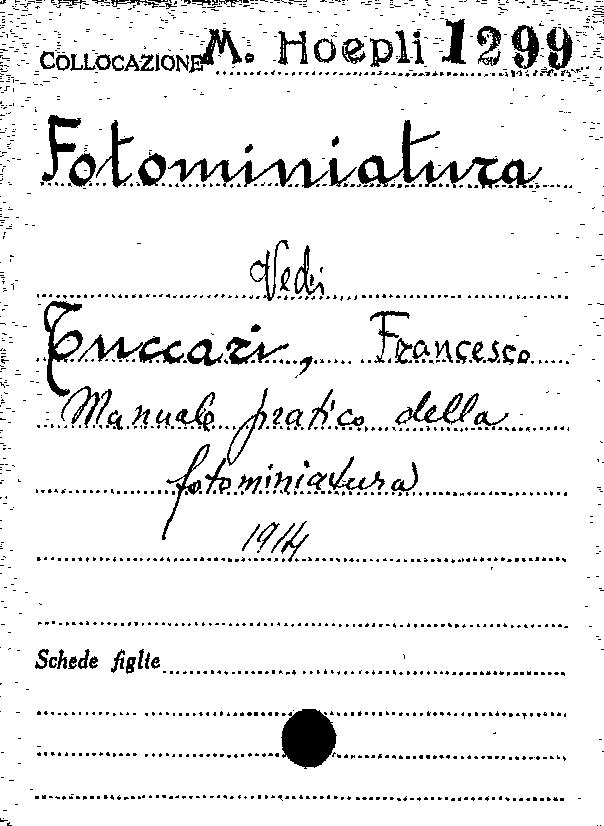 COLLOCAZIONE M. Hoepli 1299
Fotominiatura
Vedi
Tuccari, Francesco
Manuale pratico della
fotominiatura
1914
Schede figlie